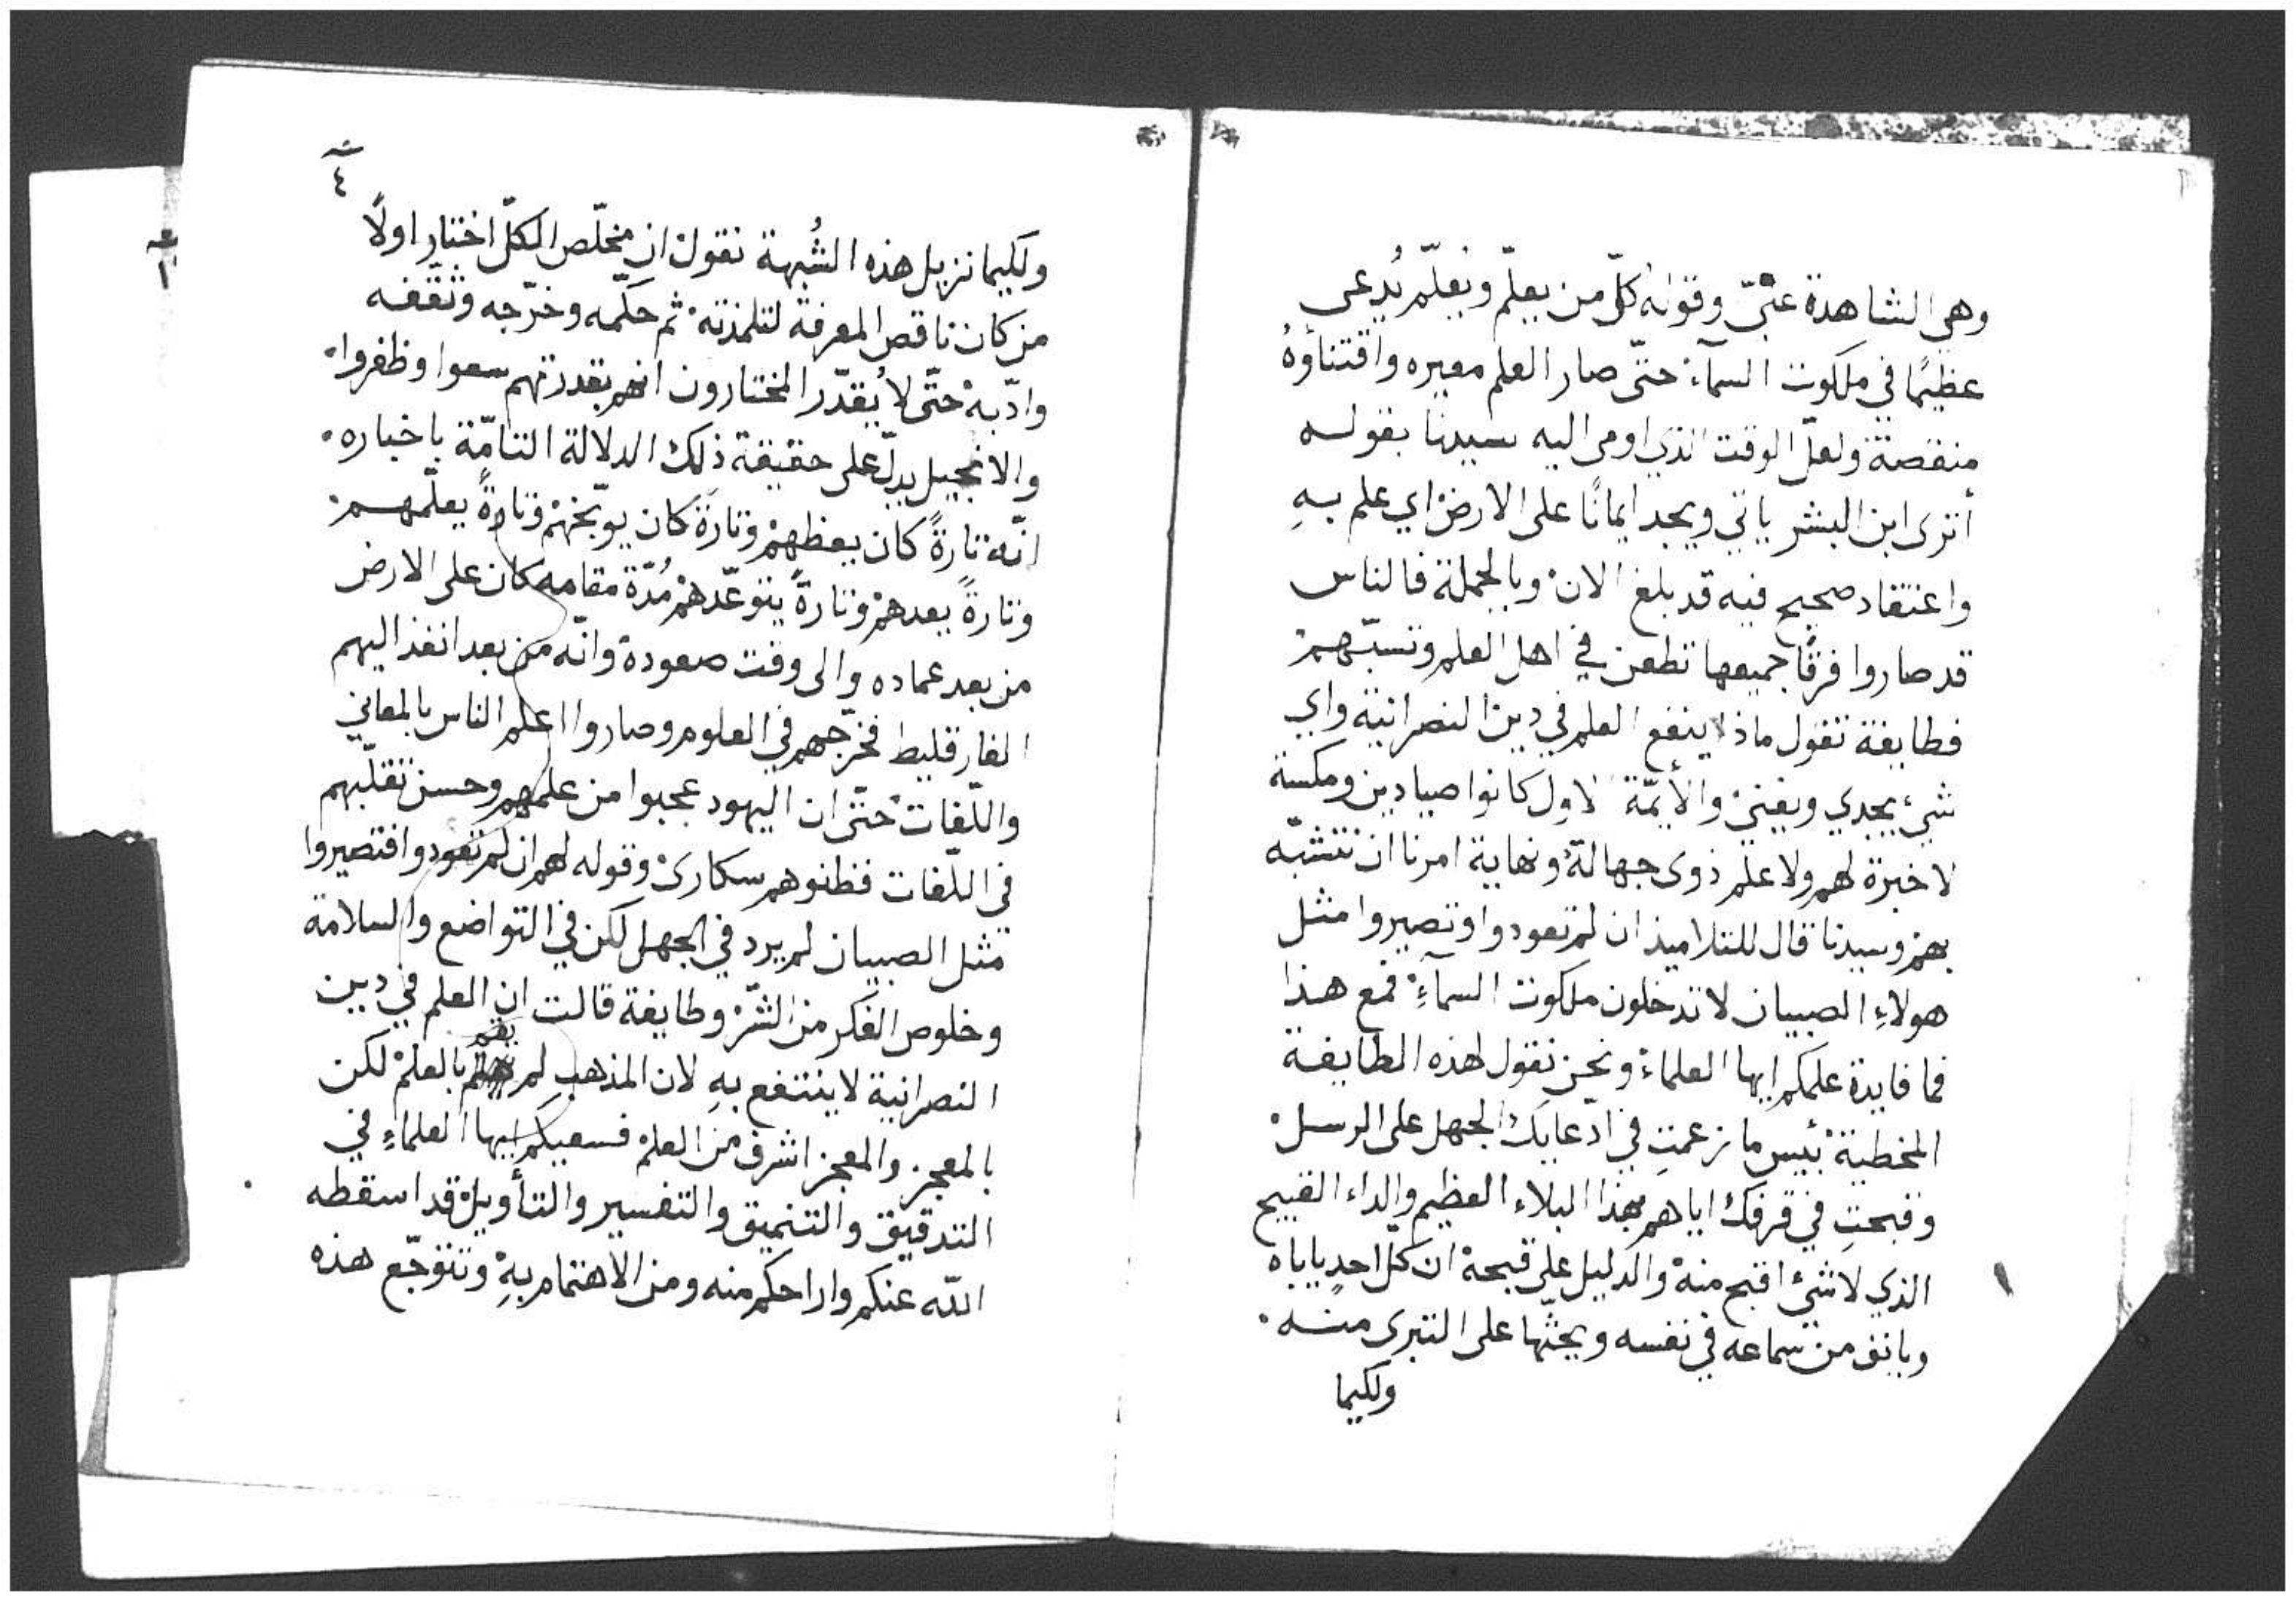 وهي الشاهدة عنّيّ وقوله كلّ من يعلّم ويعلّم يُدعى
عظيمًا في ملكوت السمآء حتّى صار العلم معيره واقتنأوهُ
منقصة ولعلّ الوقت الذي اومى اليه سيدنا بقوله
أترى ابن البشر ياتي ويجد ايمانًا على الارض اي علم بهِ
واعتقاد صحيح فيه قد بلغ الان وبالجملة فالناس
قد صاروا فرقًا جميعها تطعن في اهل العلم وتسبّهم
فطايفة تقول ماذا ينفع العلم في دين النصرانية واي
شيء يجدي ويغني والأيمّة الاول كانوا صيادين ومكسة
لا خبرة لهم ولا علم ذوى جهالة ونهاية امرنا ان نتشبّه
بهم وسيدنا قال للتلاميذ ان لم تعودوا وتصيروا مثل
هولاءِ الصبيان لا تدخلون ملكوت السمآءِ فمع هذا
فما فايدة علمكم ايها العلماء ونحن نقول لهذه الطايفة
المخطية بئيس ما زعمتِ في ادّعايكِ الجهل على الرسل
وقبحتِ في قرفك اياهم بهذا البلاء العظيم والداء القبيح
الذي لا شئ اقبح منه والدليل على قبحه ان كلّ احدٍ ياباه
ويانف من سماعه في نفسه ويحثّها على التبرى منه
ولكيما
٤
ولكيما نزيل هذه الشُبهة نقول ان مخلّص الكلّ اختار اولًا
من كان ناقص المعرفة لتلمذته ثم حكّمه وخرّجه وثقّفه
وادّبه حتّى لا يُقدّر المختارون انهم بقدرتهم سعوا وظفروا
والانجيل يدلّ على حقيقة ذلك الدلالة التامّة باخباره
انّه تارةً كان يعظهم وتارةً كان يوبّخهم وتارةً يعلّمهم
وتارةً يعدهم وتارةً يتوعّدهم مُدّة مقامه كان على الارض
من بعد عماده والى وقت صعوده وانّه من بعد انفذ اليهم
الفارقليط فخرّجهم في العلوم وصاروا اعلم الناس بالمعاني
واللّغات حتّى ان اليهود عجبوا من علمهم وحسن تقلّبهم
في اللّغات فظنوهم سكارى وقوله لهم ان لم تعودوا فتصيروا
مثل الصبيان لم يرد في الجهل لكن في التواضع والسلامة
وخلوص الفكر من الشّر وطايفة قالت ان العلم في دين
النصرانية لا ينتفع بهِ لان المذهب لم يقم بالعلم لكن
بالمعجز والمعجز اشرف من العلم فسعيكم ايها العلماءِ في
التدقيق والتنميق والتفسير والتأويل قد اسقطه
اللّه عنكم واراحكم منه ومن الاهتمام بهِ وتتوجّع هذه